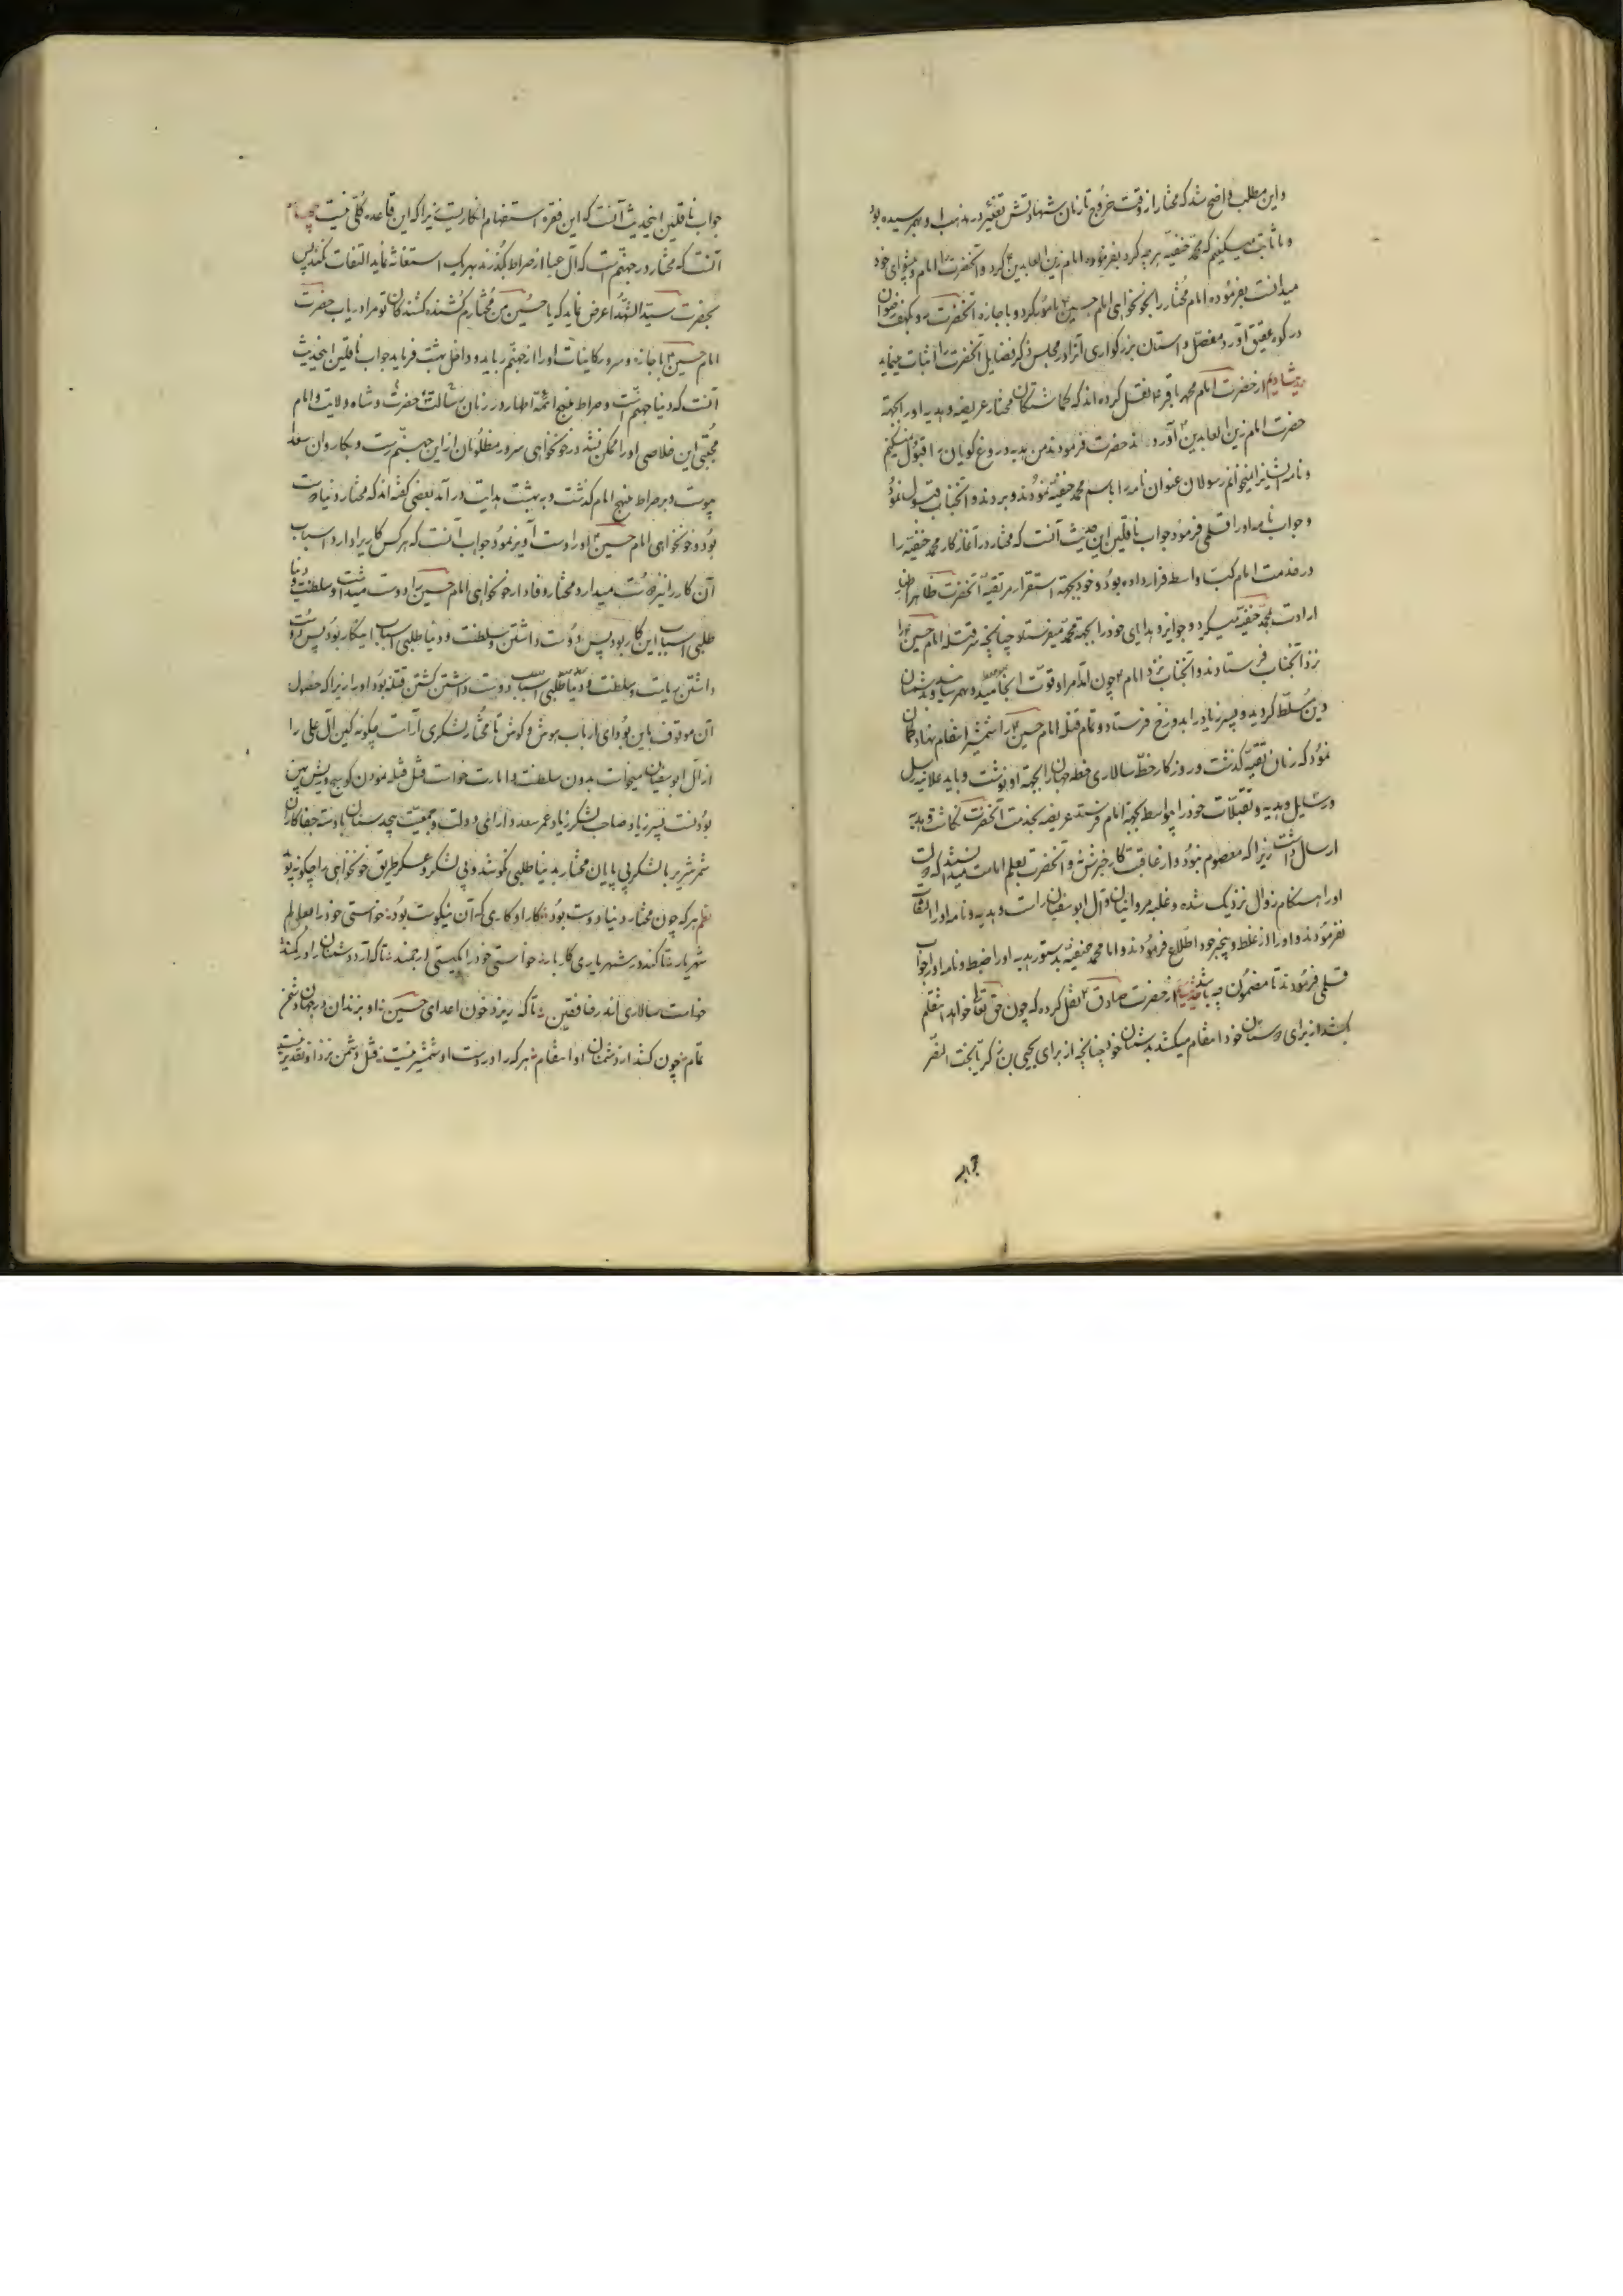 و این مطلب واضح شد که مختار از وقت خروج تا زمان شهادتش تغییر در مذهب او بهم رسیده بود
و ما ثابت میکنیم که محمد حنفیه هر چه کرد بفرموده امام زین العابدین کرد و آنحضرت را امام و پیشوای خود
میدانست بفرموده امام مختار را بخونخواهی امام حسین مامور کرد و با جازه آنحضرت
در کوه عقیق مفصل داستان بزرکواری آنرا در مجلس ذکر فضایل آنحضرت اثبات مینماید
از حضرت امام محمد باقر نقل کرده اند که کماشتکان مختار عریضه و هدیه او را بجهة
حضرت امام زین العابدین آوردند حضرت فرمودند من هدیه دروغ کویان را قبول نمیکنم
و نامه ایشانرا نمیخوانم رسولان عنوان نامه را باسم محمد حنفیه نمودند و بردند و آنجناب قبول نمود
و جواب نامه او را قلمی فرمود جواب ناقلین این حدیث آنست که مختار در آغاز کار محمد حنفیه را
در خدمت امام واسطه قرار داده بود و خود بجهة استقرار مر تقیه آنحضرت ظاهرا
ارادت بمحمد حنفیه میکرد و جوایز و هدایای خود را بجهة محمد میفرستاد چنانچه سر قتله امام حسین را
نزد آنجناب فرستادند و آنجناب نزد امام چون
دین مسلط کردید و پسر زیاد را بدوزخ فرستاد و تمام قتله امام حسین را شمشیر انتقام نهاد کمان
نمود که زمان تقیه کذشت و روزکار خط سالاری خطه جهان را بجهة او نوشت و باید علانیه رسل
و رسایل و هدیه و تقبلات خود را بواسطه بجهة امام فرستد عریضه بخدمت آنحضرت نکاشت و هدیه
ارسال داشت زیرا که معصوم نبود و از عاقبت کار خبر نداشت و آنحضرت بعلم امامت میدانست که دولت
او را هنکام زوال نزدیک شده و غلبه مروانیان و آل ابوسفیان راست و هدیه و نامه او را التفات
نفرمودند و او را از غلط و اطلاع فرمودند و اما محمد حنفیه بدستور هدیه او را ضبط و نامه او را جواب
قلمی فرمودند تا مضمون چه باشد از حضرت صادق نقل کرده که چون حق تعالی خواهد انتقام
بکشد از برای دوستان خود انتقام میکشد بدشمنان خود چنانچه از برای یحیی بن زکریا بخت النصر
جواب ناقلین اینحدیث آنست که این فقره استفهام انکاریست زیرا که این قاعده کلی نیست
آنست که مختار در جهنم است که آل عبا از صراط بکذرند بهر یک استغاثه نماید التفات نکنند پس
بحضرت سید الشهدا عرض نماید که یا حسین من مختارم کشنده کشندکان تو مرا دریاب حضرت
امام حسین با جازه سرور کاینات او را از جهنم رباید و داخل بهشت فرماید جواب ناقلین اینحدیث
آنست که دنیا جهنم است و صراط منهج ائمه اطهار در زمان رسالت حضرت و شاه ولایت و امام
مجتبی این خلاصی او را ممکن نشد در خونخواهی سرور مظلومان از این جهنم رست و بکاروان سعد
پیوست و بر صراط منهج امام کذشت و به بهشت هدایت در آمد بعضی کفته اند که مختار دنیا دوست
بود و خونخواهی امام حسین را دست آویز نمود جواب آنست که هر کس کاریرا دارد اسباب
آن کار را نیز دوست میدارد مختار وفادار خونخواهی امام حسین را دوست میداشت و سلطنت و دنیا
طلبی اسباب این کار بود پس دوست داشتن سلطنت و دنیا طلبی اسباب اینکار بود پس دوست
داشتن ریاست و سلطنت و دنیا طلبی اسباب دوست داشتن کشتن قتله بود او را زیرا که حصول
آن موقوف باین بود ای ارباب هوش و کوش تا مختار لشکری آراست چکونه کین آل علی را
از آل ابوسفیان میخواست بدون سلطنت و امارت خواست قتل قتله نمودن کوسج و ریش پهن
بودنست پسر زیاد صاحب لشکر زیاد عمر سعد دارای دولت و جمعیت بیحد سنان با دسته جفا کاران
شمر شریر با لشکر بی پایان مختار بدنیا طلبی نکوشد و بی لشکر و عسکر طریق خونخواهی را چکونه پو
هر که چون مختار دنیا دوست بود کار او کاری که آن نیکوست بود خواستی خود را
شهریار تا کند در شهریاری کار بار خواستی خود را بکیتی ارجمند تا که آرد دشمنان را در کمند
خواست سالاری اندر خافقین تا که ریزد خون اعدای حسین او بزندان در جهان دشمن
تمام چون کشد از دشمنان او انتقام هر که را در دست او شمشیر نیست قتل دشمن نزد او تقدیر نیست